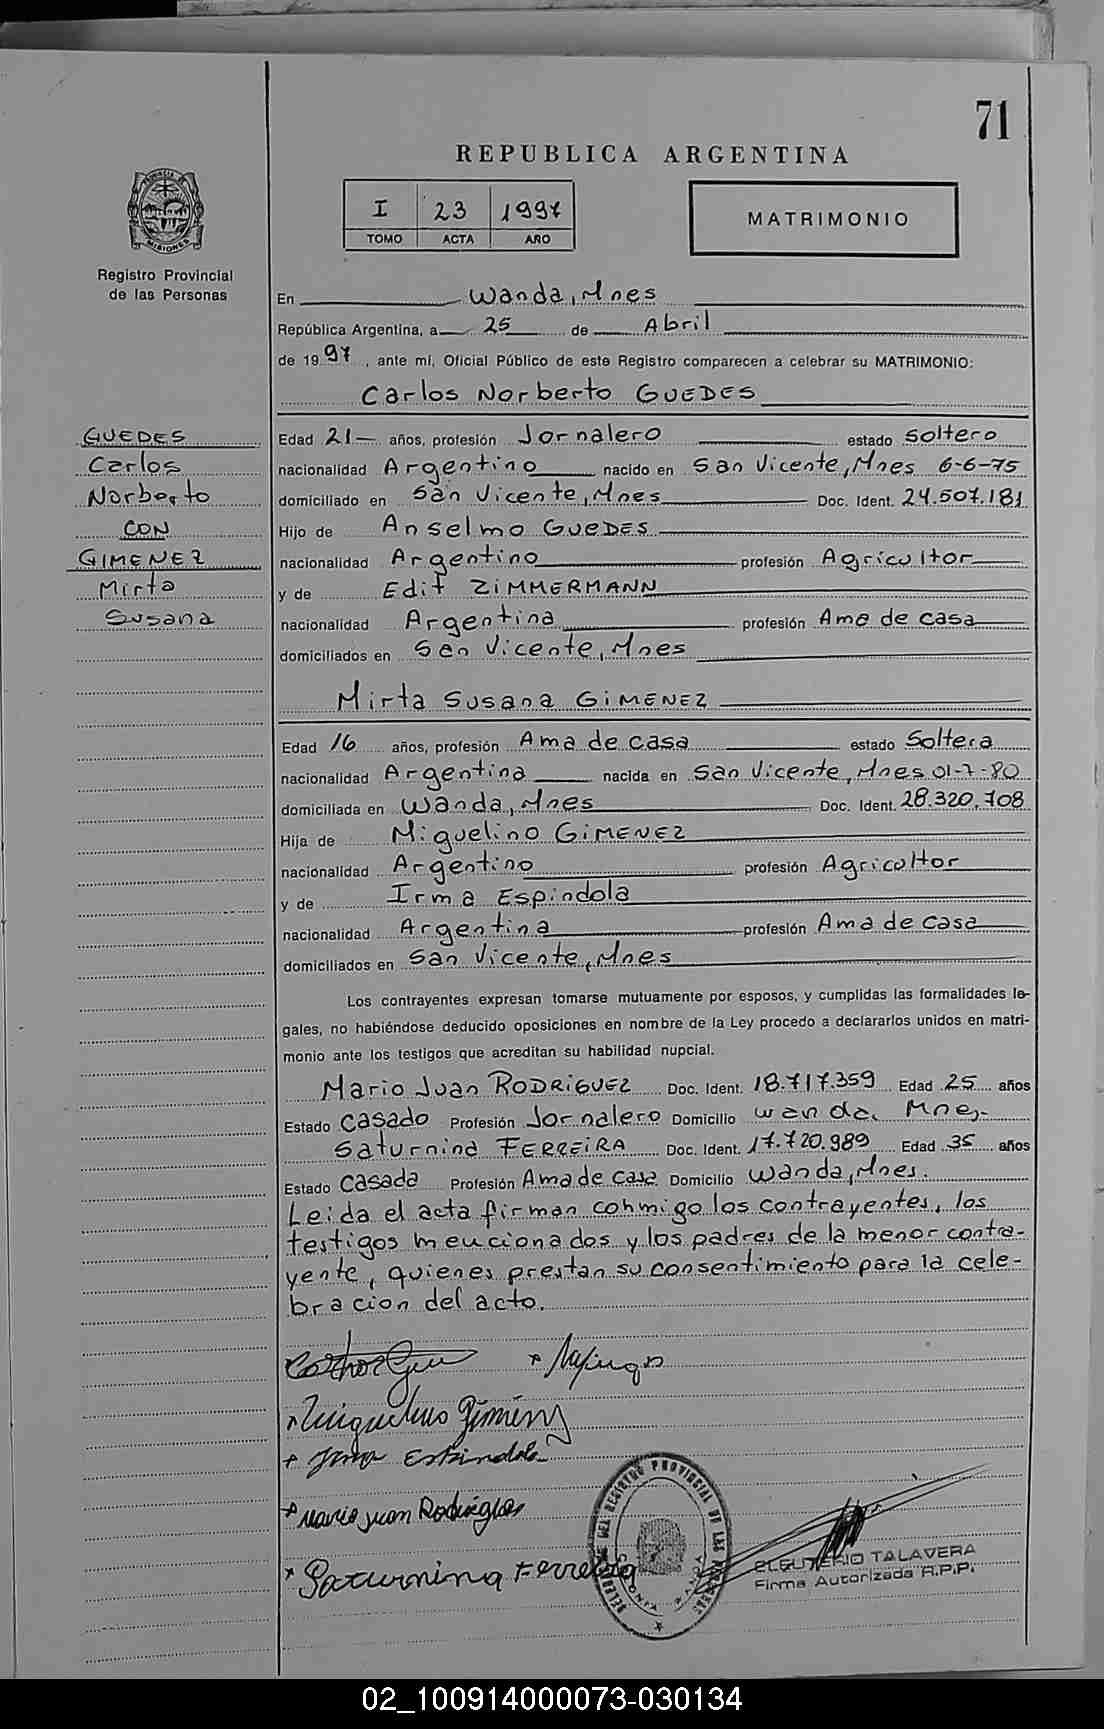 71
REPUBLICA ARGENTINA
I 23 1997
TOMO ACTA AÑO
MATRIMONIO
PROVINCIA DE MISIONES
Registro Provincial
de las Personas
En Wanda, Mnes
República Argentina, a 25 de Abril
de 1997, ante mí, Oficial Público de este Registro comparecen a celebrar su MATRIMONIO:
Carlos Norberto GUEDES
GUEDES
Carlos
Norberto
CON
GIMENEZ
Mirta
Susana
Edad 21 años, profesión Jornalero estado soltero
nacionalidad Argentino nacido en San Vicente, Mnes 6-6-75
domiciliado en San Vicente, Mnes Doc. Ident. 24.507.181
Hijo de Anselmo GUEDES
nacionalidad Argentino profesión Agricultor
y de Edit ZIMMERMANN
nacionalidad Argentina profesión Ama de casa
domiciliados en San Vicente, Mnes
Mirta Susana GIMENEZ
Edad 16 años, profesión Ama de casa estado Soltera
nacionalidad Argentina nacida en San Vicente, Mnes 01-7-80
domiciliada en Wanda, Mnes Doc. Ident. 28.320.708
Hija de Miguelino GIMENEZ
nacionalidad Argentino profesión Agricultor
y de Irma Espindola
nacionalidad Argentina profesión Ama de casa
domiciliados en San Vicente, Mnes
Los contrayentes expresan tomarse mutuamente por esposos, y cumplidas las formalidades le-
gales, no habiéndose deducido oposiciones en nombre de la Ley procedo a declararlos unidos en matri-
monio ante los testigos que acreditan su habilidad nupcial.
Mario Juan RODRIGUEZ Doc. Ident. 18.717.359 Edad 25 años
Estado Casado Profesión Jornalero Domicilio Wanda, Mnes.
Saturnina FERREIRA Doc. Ident. 17.720.989 Edad 35 años
Estado Casada Profesión Ama de casa Domicilio Wanda, Mnes.
Leida el acta firman conmigo los contrayentes, los
testigos mencionados y los padres de la menor contra-
yente, quienes prestan su consentimiento para la cele-
bracion del acto.
Miguelino Giménez
Irma Espindola
Mario Juan Rodriguez
Saturnina Ferreira
DEL REGISTRO PROVINCIAL DE LAS PERSONAS
ELEUTERIO TALAVERA
Firma Autorizada R.P.P.
02_100914000073-030134